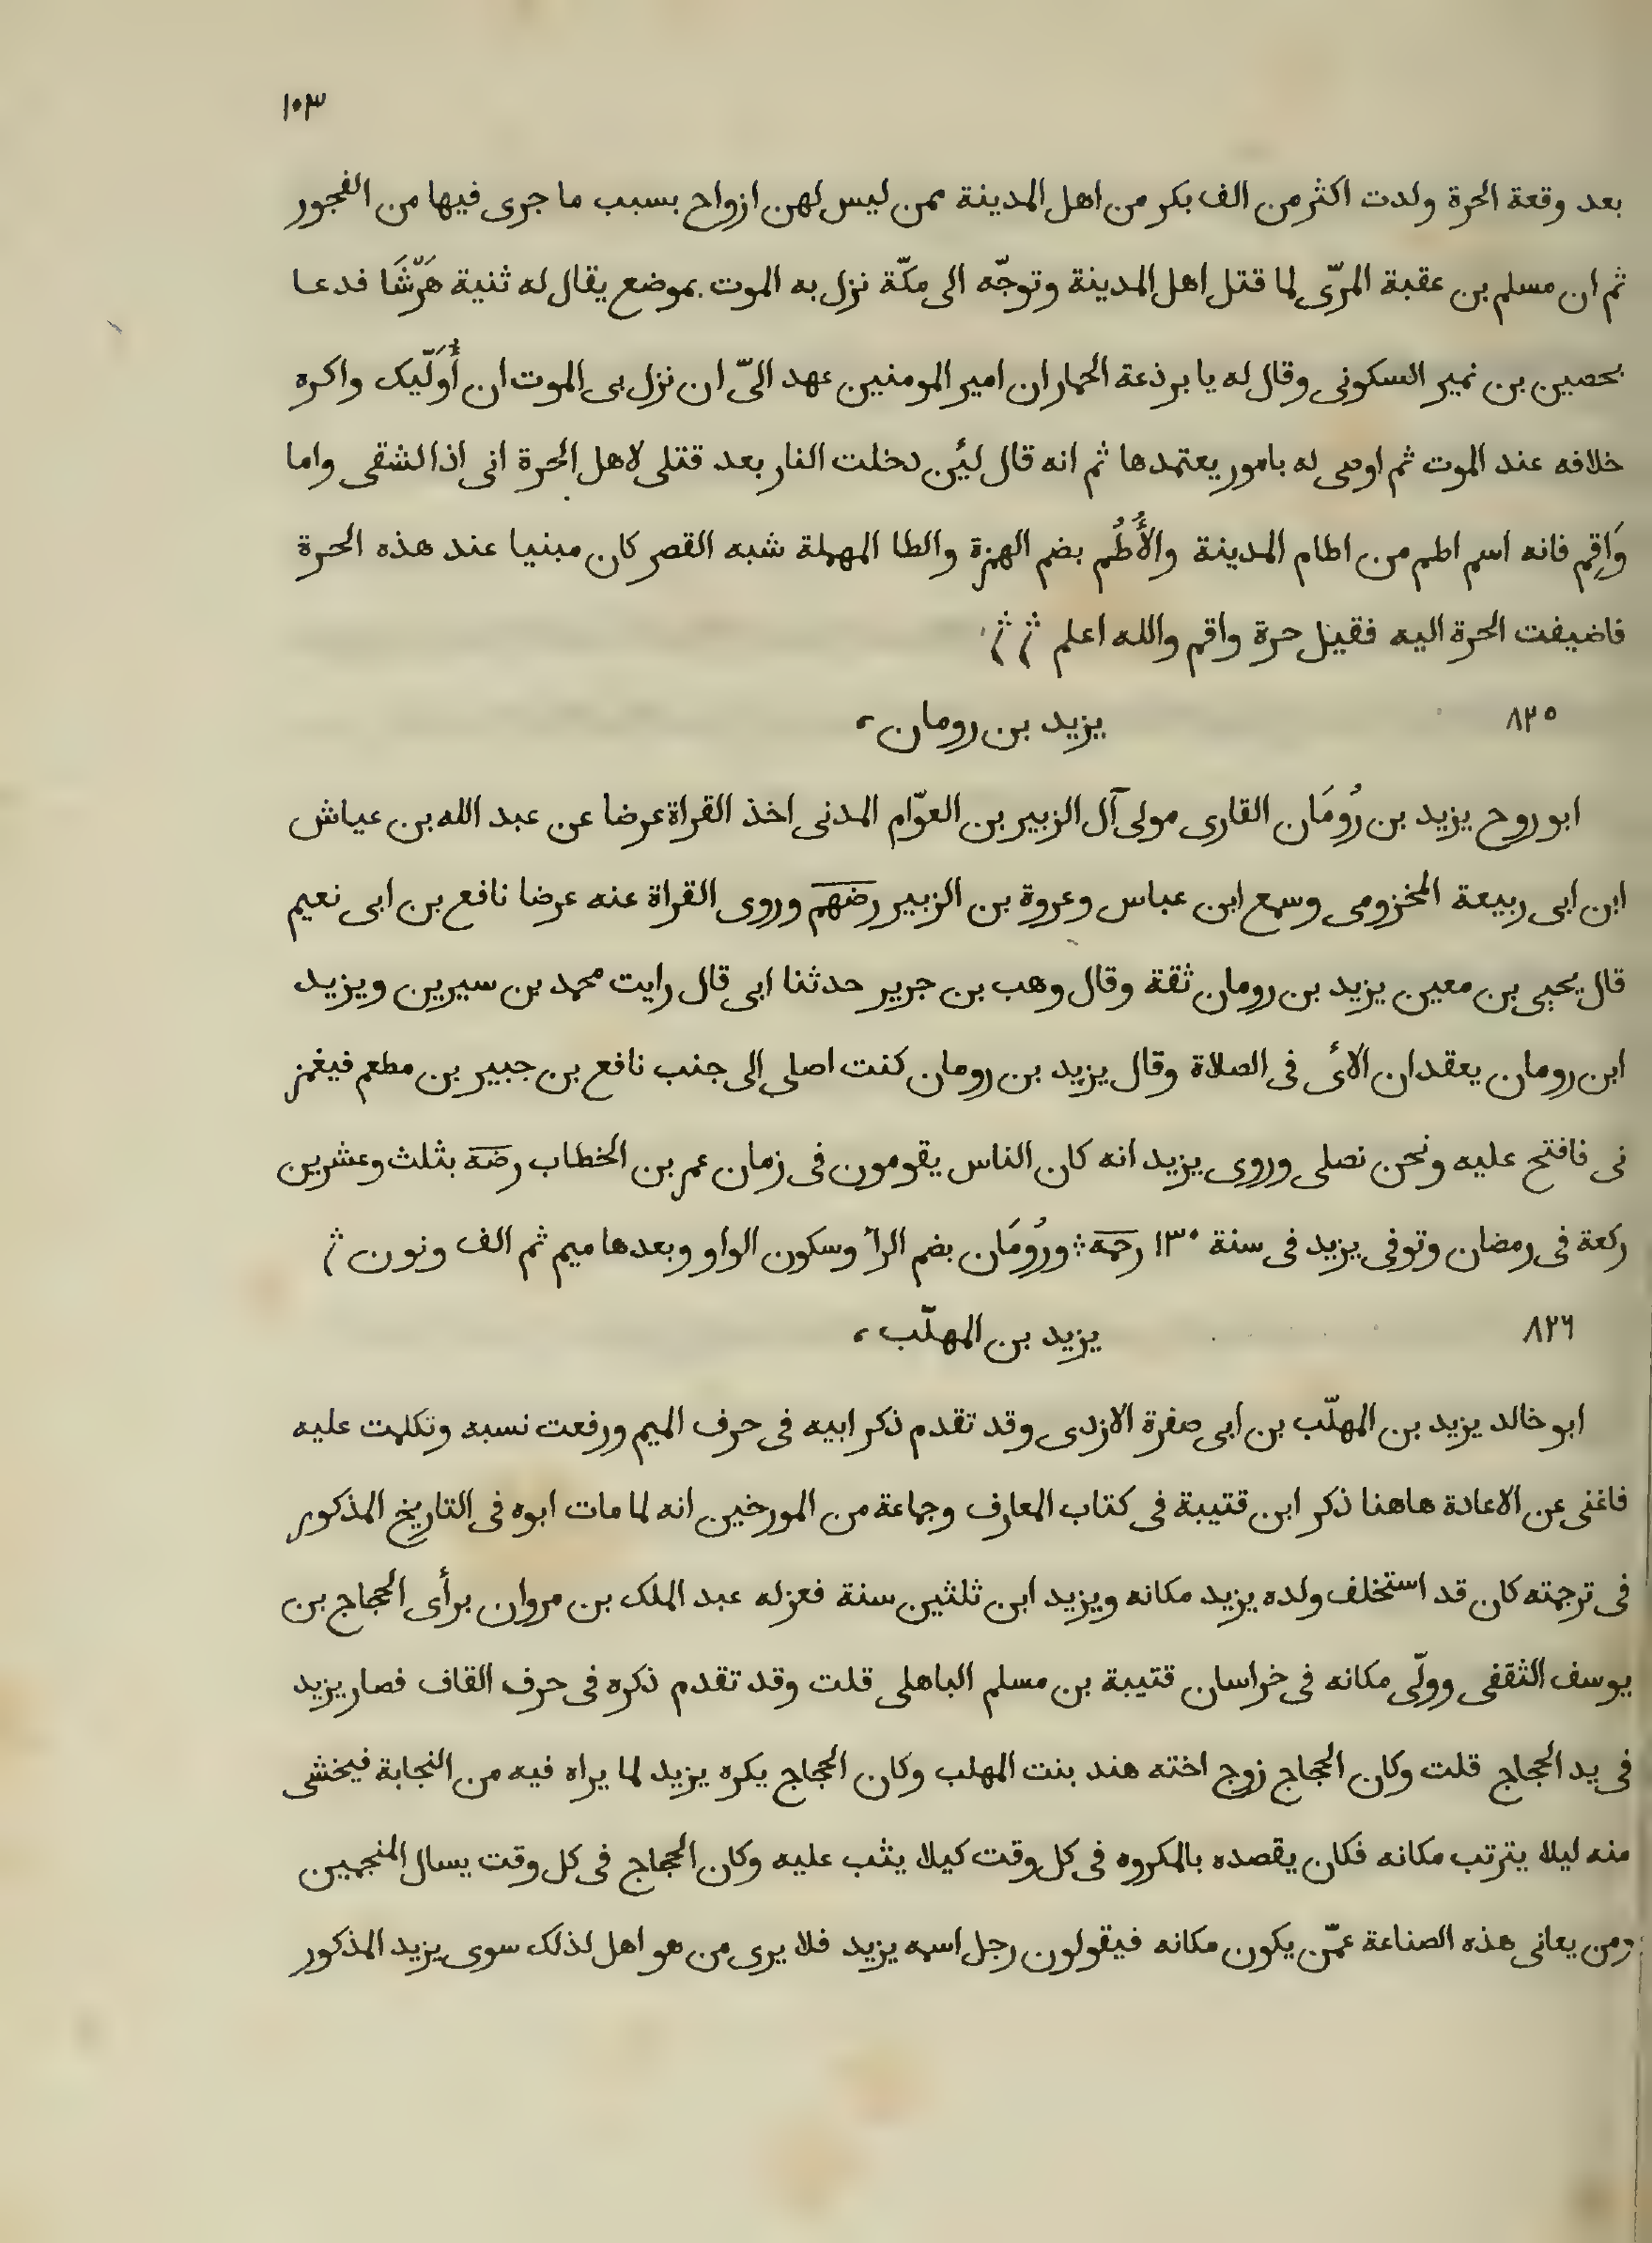 ١٠٣
بعد وقعة الحرة ولدت اكثر من الف بكر من اهل المدينة ممن ليس لهن ازواج بسبب ما جرى فيها من الفجور
ثم ان مسلم بن عقبة المرّى لما قتل اهل المدينة وتوجّه الى مكّة نزل به الموت بموضع يقال له ثنية هَرْشَا فدعا
بحصين بن نمير السكونى وقال له يا برذعة الحمار ان امير المومنين عهد الىّ ان نزل بى الموت ان أُوَلّيك واكره
خلافه عند الموت ثم اوصى له بامور يعتمدها ثم انه قال لئن دخلت النار بعد قتلى لاهل الحرة انى اذا لشقى واما
وَاقِم فانه اسم اطم من اطام المدينة والأُطُم بضم الهمزة والطا المهملة شبه القصر كان مبنيا عند هذه الحرة
فاضيفت الحرة اليه فقيل حرة واقم والله اعلم
٨٢٥ يزيد بن رومان،
ابو روح يزيد بن رُومَان القارى مولى آل الزبير بن العوّام المدنى اخذ القراة عرضا عن عبد الله بن عياش
ابن ابى ربيعة المخزومى وسمع ابن عباس وعروة بن الزبير رضهم وروى القراة عنه عرضا نافع بن ابى نعيم
قال يحيى بن معين يزيد بن رومان ثقة وقال وهب بن جرير حدثنا ابى قال رايت محمد بن سيرين ويزيد
ابن رومان يعقدان الائ فى الصلاة وقال يزيد بن رومان كنت اصلى الى جنب نافع بن جبير بن مطعم فيغمز
نى فافتح عليه ونحن نصلى وروى يزيد انه كان الناس يقومون فى زمان عمر بن الخطاب رضه بثلث وعشرين
ركعة فى رمضان وتوفى يزيد فى سنة ١٣٠ رحمه ورُومَان بضم الرآ وسكون الواو وبعدها ميم ثم الف ونون
٨٢٦ يزيد بن المهلّب،
ابو خالد يزيد بن المهلّب بن ابى صفرة الازدى وقد تقدم ذكر ابيه فى حرف الميم ورفعت نسبه وتكلمت عليه
فاغنى عن الاعادة هاهنا ذكر ابن قتيبة فى كتاب المعارف وجماعة من المورخين انه لما مات ابوه فى التاريخ المذكور
فى ترجمته كان قد استخلف ولده يزيد مكانه ويزيد ابن ثلثين سنة فعزله عبد الملك بن مروان برأى الحجاج بن
يوسف الثقفى وولّى مكانه فى خراسان قتيبة بن مسلم الباهلى قلت وقد تقدم ذكره فى حرف القاف فصار يزيد
فى يد الحجاج قلت وكان الحجاج زوج اخته هند بنت المهلب وكان الحجاج يكره يزيد لما يراه فيه من النجابة فيخشى
منه ليلا يترتب مكانه فكان يقصده بالمكروه فى كل وقت كيلا يثب عليه وكان الحجاج فى كل وقت يسال المنجمين
ومن يعانى هذه الصناعة عمّن يكون مكانه فيقولون رجل اسمه يزيد فلا يرى من هو اهل لذلك سوى يزيد المذكور